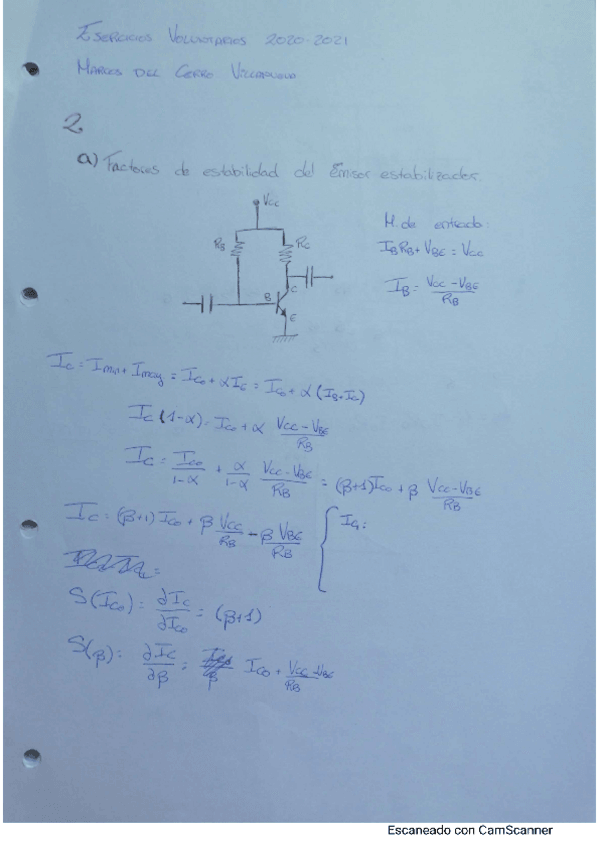 EJERCICIOS VOLUNTARIOS 2020-2021
MARCOS DEL CERRO
2.
a) Factores de estabilidad del Emisor estabilizador.
Vcc
RB
RC
C
B
E
M. de entrada:
IB RB + VBE = Vcc
IB = (Vcc - VBE)/RB
Ic = Imin + Imay = Ico + αIE = Ico + α (IB + Ic)
Ic (1-α) = Ico + α (Vcc - VBE)/RB
Ic = Ico/(1-α) + α/(1-α) (Vcc - VBE)/RB = (β+1)Ico + β (Vcc - VBE)/RB
Ic = (β+1) Ico + β Vcc/RB - β VBE/RB { IC1 =
S(Ico) = ∂Ic/∂Ico = (β+1)
S(β) = ∂Ic/∂β = Ico + (Vcc - VBE)/RB
Escaneado con CamScanner